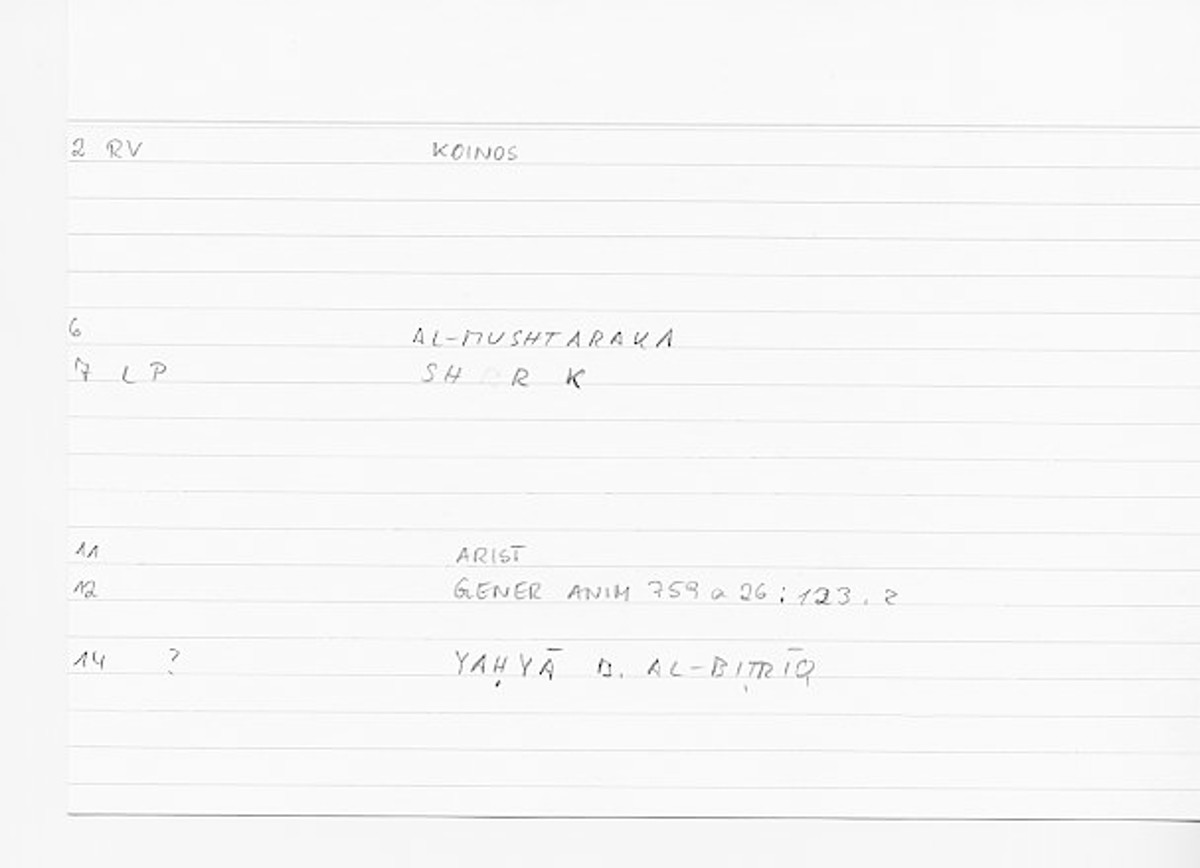 2 RV KOINOS
6 AL-MUSHTARAKA
7 LP SH R K
11 ARIST
12 GENER ANIM 759 a 26 : 123. 2
14 ? YAḤYĀ B. AL-BIṬRĪQ